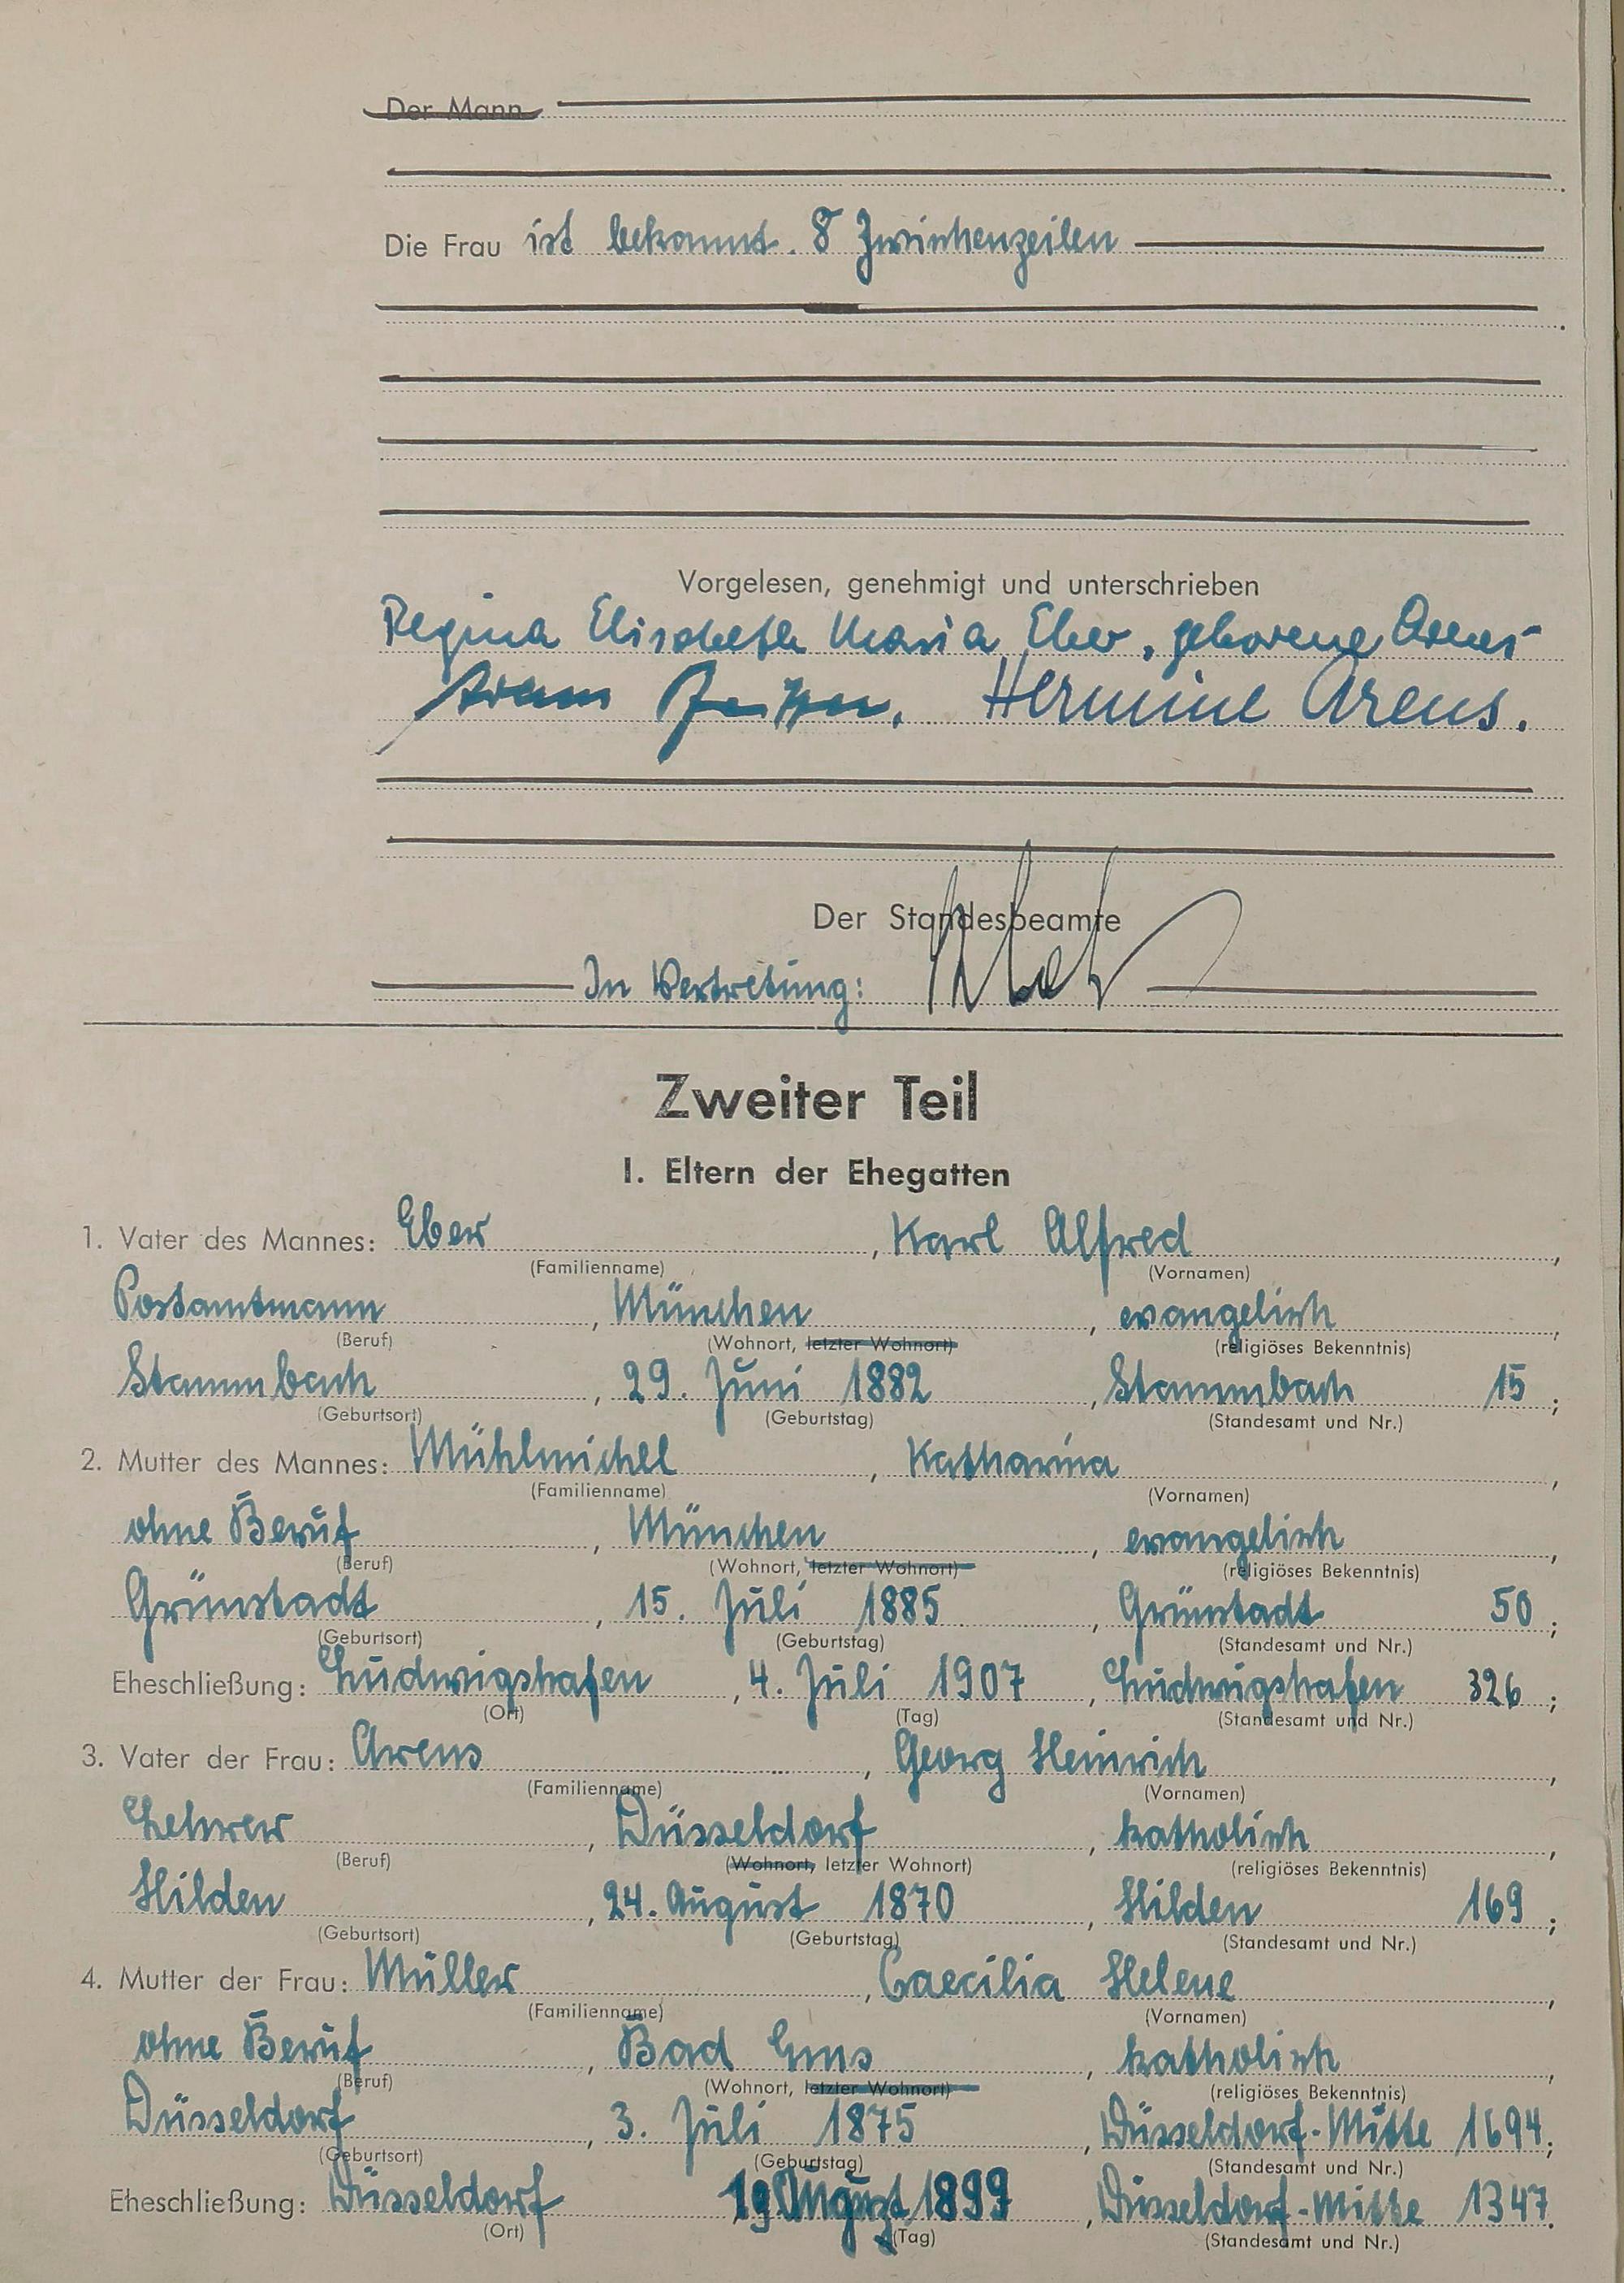 Der Mann
Die Frau ist bekannt. 8 Zwischenzeilen
Vorgelesen, genehmigt und unterschrieben
Regina Elisabeth Maria Eber, geborene Arens
Hermine Arens.
Der Standesbeamte
In Vertretung:
Zweiter Teil
I. Eltern der Ehegatten
1. Vater des Mannes: Eber, Karl Alfred,
(Familienname) (Vornamen)
Postamtmann, München, evangelisch,
(Beruf) (Wohnort, letzter Wohnort) (religiöses Bekenntnis)
Stammbach, 29. Juni 1882, Stammbach 15;
(Geburtsort) (Geburtstag) (Standesamt und Nr.)
2. Mutter des Mannes: Mühlmichel, Katharina,
(Familienname) (Vornamen)
ohne Beruf, München, evangelisch,
(Beruf) (Wohnort, letzter Wohnort) (religiöses Bekenntnis)
Grünstadt, 15. Juli 1885, Grünstadt 50;
(Geburtsort) (Geburtstag) (Standesamt und Nr.)
Eheschließung: Ludwigshafen, 4. Juli 1907, Ludwigshafen 326;
(Ort) (Tag) (Standesamt und Nr.)
3. Vater der Frau: Arens, Georg Heinrich,
(Familienname) (Vornamen)
Lehrer, Düsseldorf, katholisch,
(Beruf) (Wohnort, letzter Wohnort) (religiöses Bekenntnis)
Hilden, 24. August 1870, Hilden 169;
(Geburtsort) (Geburtstag) (Standesamt und Nr.)
4. Mutter der Frau: Müller, Caecilia Helene,
(Familienname) (Vornamen)
ohne Beruf, Bad Ems, katholisch,
(Beruf) (Wohnort, letzter Wohnort) (religiöses Bekenntnis)
Düsseldorf, 3. Juli 1875, Düsseldorf-Mitte 1694;
(Geburtsort) (Geburtstag) (Standesamt und Nr.)
Eheschließung: Düsseldorf 19 August 1899, Düsseldorf-Mitte 1347.
(Ort) (Tag) (Standesamt und Nr.)